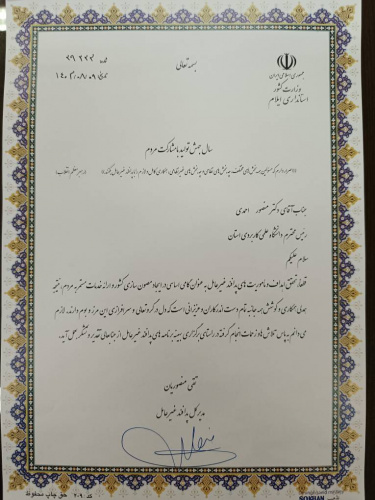 بسمه تعالی
شماره ۲۹۲۲۲
تاریخ ۱۴۰۳/۰۸/۰۹
جمهوری اسلامی ایران
وزارت کشور
استانداری ایلام
سال جهش تولید با مشارکت مردم
جناب آقای دکتر منصور احمدی
رئیس محترم دانشگاه علمی کاربردی استان
سلام علیکم
قطعاً تحقق اهداف و ماموریت های پدافند غیرعامل به عنوان گامی اساسی در ایجاد مصون سازی کشور و ارائه خدمات مستمر به مردم، نتیجه
همدلی، همکاری و کوشش همه جانبه تمام دست اندرکاران و عزیزانی است که دل در گرو تعالی و سرافرازی این مرز و بوم دارند. لازم
می دانم به پاس تلاش ها و زحمات انجام گرفته در راستای برگزاری بهینه برنامه های پدافند غیرعامل از جنابعالی تقدیر و تشکر بعمل آید.
تقی منصوریان
مدیرکل پدافند غیرعامل
کد: ۷۰۹ حق چاپ محفوظ